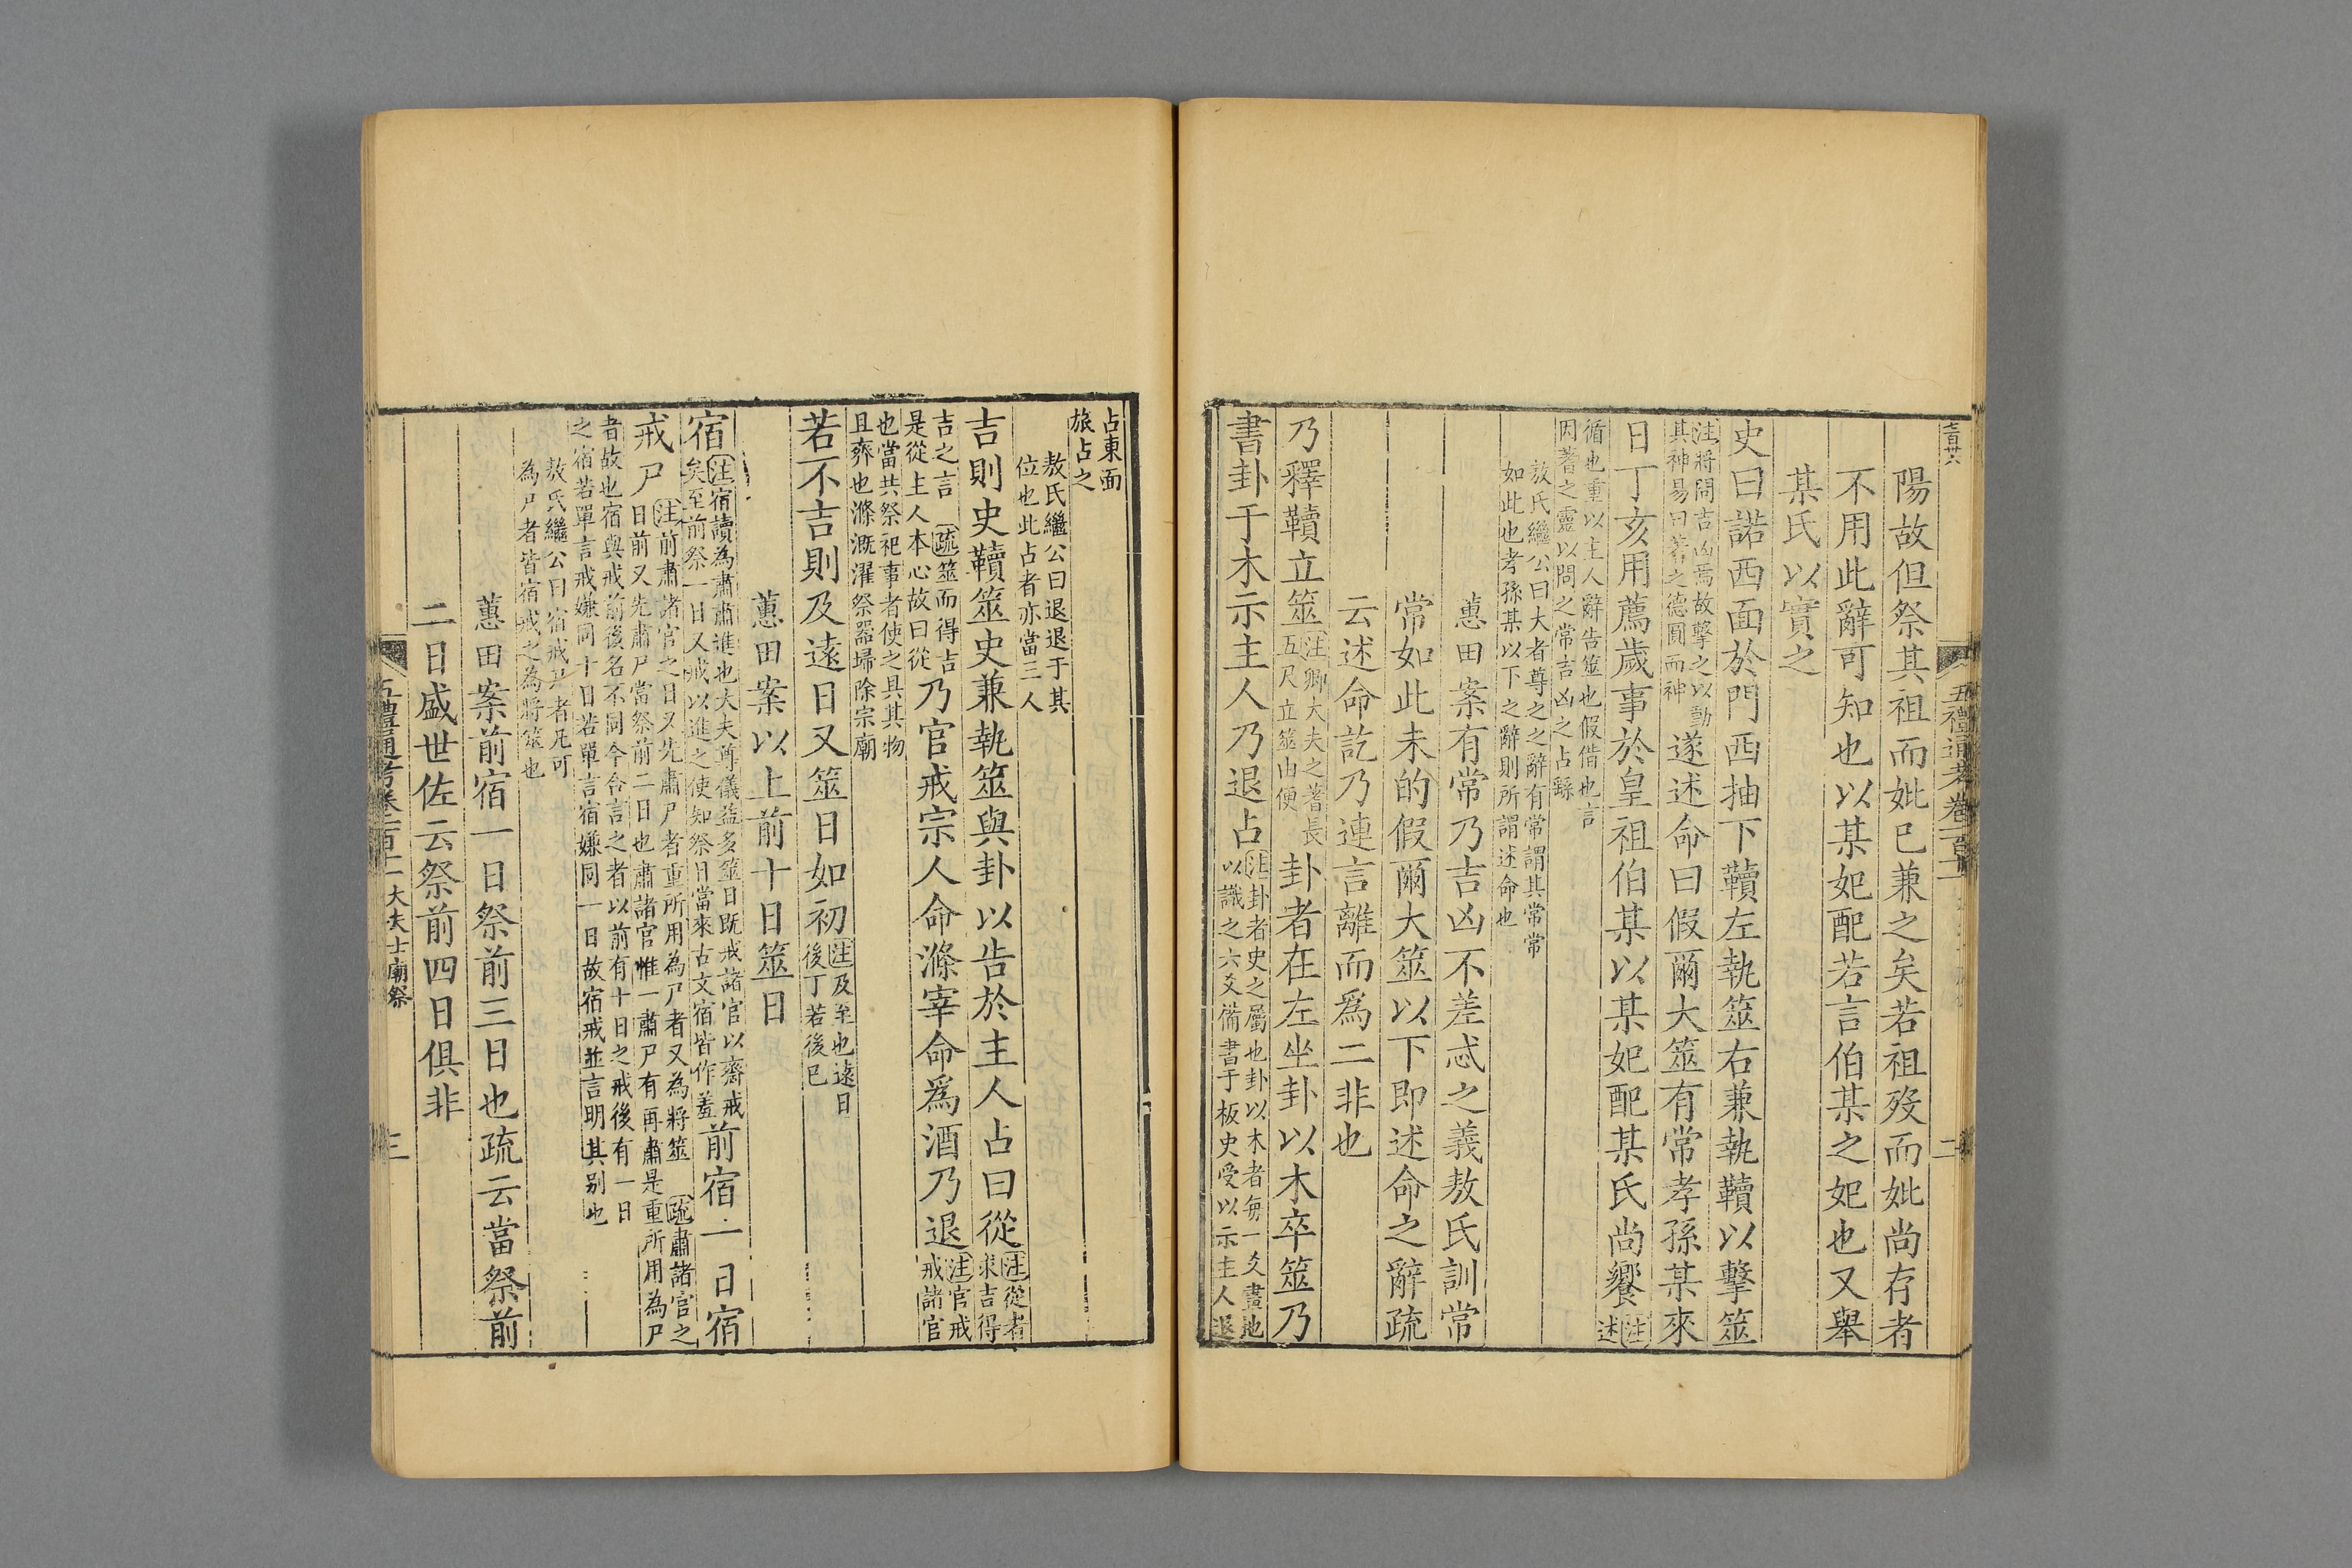 陽故但祭其祖而妣已兼之矣若祖歿而妣尚存者
不用此辭可知也以某妃配若言伯某之妃也又舉
某氏以實之
史曰諾西面於門西抽下韇左執筮右兼執韇以擊筮
注將問吉凶焉故擊之以動
其神易曰蓍之德圓而神
遂述命曰假爾大筮有常孝孫某來
日丁亥用薦歲事於皇祖伯某以某妃配某氏尚饗
注述
循也重以主人辭告筮也假借也言
因蓍之靈以問之常吉凶之占繇
敖氏繼公曰大者尊之之辭有常謂其常常
如此也孝孫某以下之辭則所謂述命也
蕙田案有常乃吉凶不差忒之義敖氏訓常
常如此未的假爾大筮以下即述命之辭疏
云述命訖乃連言離而爲二非也
乃釋韇立筮
注卿大夫之蓍長
五尺立筮由便
卦者在左坐卦以木卒筮乃
書卦于木示主人乃退占
注卦者史之屬也卦以木者每一爻畫地
以識之六爻備書于板史受以示主人退
占東面
旅占之
敖氏繼公曰退退于其
位也此占者亦當三人
吉則史韇筮史兼執筮與卦以告於主人占曰從
注從者
求吉得
吉之言　疏筮而得吉
是從主人本心故曰從
乃官戒宗人命滌宰命爲酒乃退
注官戒
戒諸官
也當共祭祀事者使之具其物
且齊也滌溉濯祭器埽除宗廟
若不吉則及遠日又筮日如初
注及至也遠日
後丁若後已
蕙田案以上前十日筮日
宿
注宿讀為肅肅進也大夫尊儀益多筮日既戒諸官以齋戒
矣至前祭一日又戒以進之使知祭日當來古文宿皆作羞
前宿一日宿
戒尸
注前肅諸官之日又先肅尸者重所用為尸者又為將筮　疏肅諸官之
日前又先肅尸當祭前二日也肅諸官惟一肅尸有再肅是重所用為尸
者故也宿與戒前後名不同今合言之者以前有十日之戒後有一日
之宿若單言戒嫌同十日若單言宿嫌同一日故宿戒並言明其别也
敖氏繼公曰宿戒尸者凡可
為尸者皆宿戒之為將筮也
蕙田案前宿一日祭前三日也疏云當祭前
二日盛世佐云祭前四日俱非
五禮通考卷一百十一大夫士廟祭
三